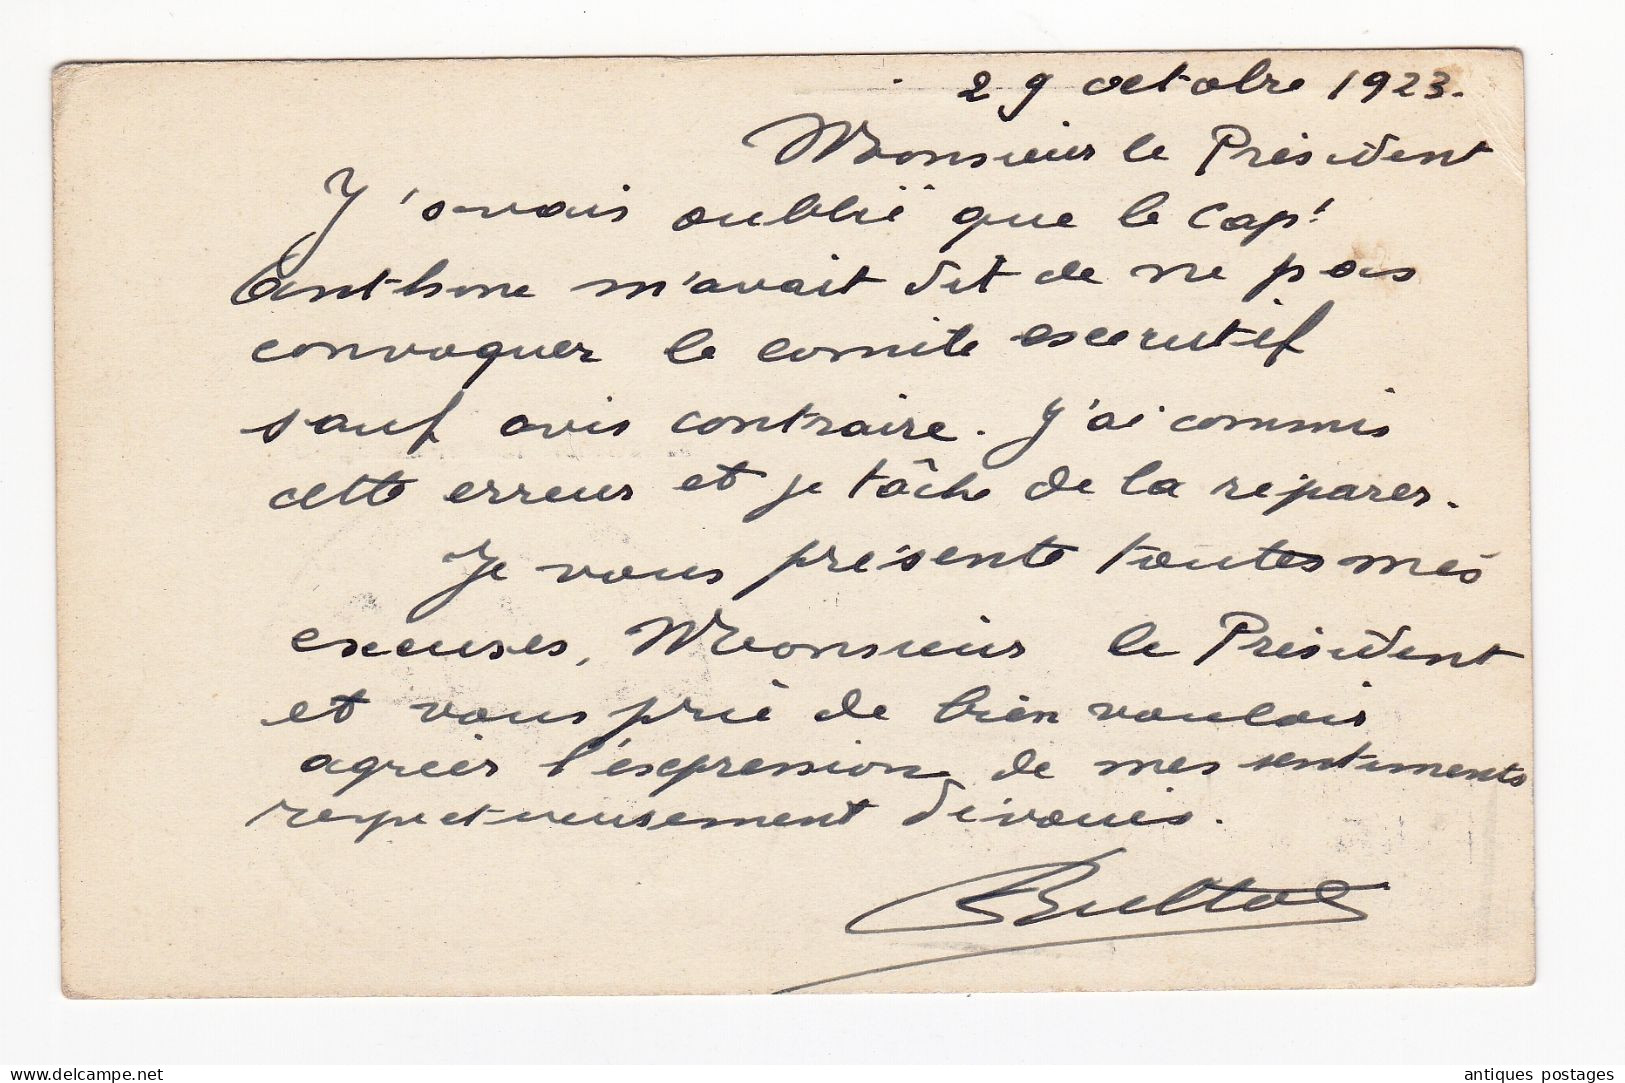 29 octobre 1923.
Monsieur le Président
J'avais oublié que le Capt
Anthone m'avait dit de ne pas
convoquer le comité executif
sauf avis contraire. J'ai commis
cette erreur et je tâche de la réparer.
Je vous présente toutes mes
excuses, Monsieur le Président
et vous prie de bien vouloir
agréer l'expression de mes sentiments
respectueusement dévoués.
antiques postages
www.delcampe.net